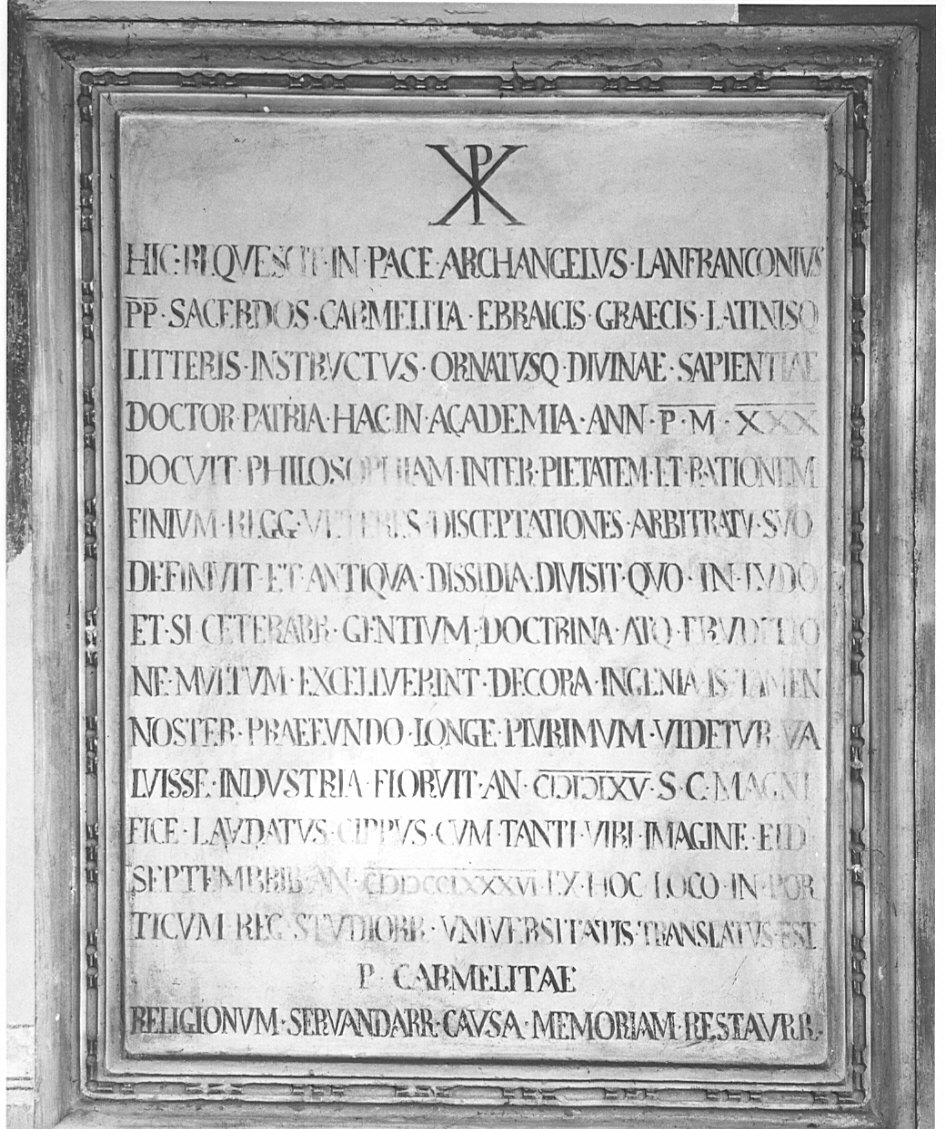 ☧
HIC·REQVESCIT·IN·PACE·ARCHANGELVS·LANFRANCONIVS
P̅P̅·SACERDOS·CARMELITA·EBRAICIS·GRAECIS·LATINISQ
LITTERIS·INSTRVCTVS·ORNATVSQ·DIVINAE·SAPIENTIAE
DOCTOR·PATRIA·HAC·IN·ACADEMIA·ANN·P̅·M̅·X̅X̅X̅
DOCVIT·PHILOSOPHIAM·INTER·PIETATEM·ET·RATIONEM
FINIVM·REGG·VETERES·DISCEPTATIONES·ARBITRATV·SVO
DEFINIVIT·ET·ANTIQVA·DISSIDIA·DIVISIT·QVO·IN·LVDO
ET·SI·CETERARR·GENTIVM·DOCTRINA·ATQ·ERVDITIO
NE·MVLTVM·EXCELLVERINT·DECORA·INGENIA·IS·TAMEN
NOSTER·PRAEEVNDO·LONGE·PLVRIMVM·VIDETVR·VA
LVISSE·INDVSTRIA·FLORVIT·AN·S·C·MAGNI
FICE·LAVDATVS·CIPPVS·CVM·TANTI·VIRI·IMAGINE·EID
SEPTEMBRIB·AN·EX·HOC·LOCO·IN·POR
TICVM·REG·STVDIORR·VNIVERSITATIS·TRANSLATVS·EST
P·CARMELITAE
RELIGIONVM·SERVANDARR·CAVSA·MEMORIAM·RESTAVRR·